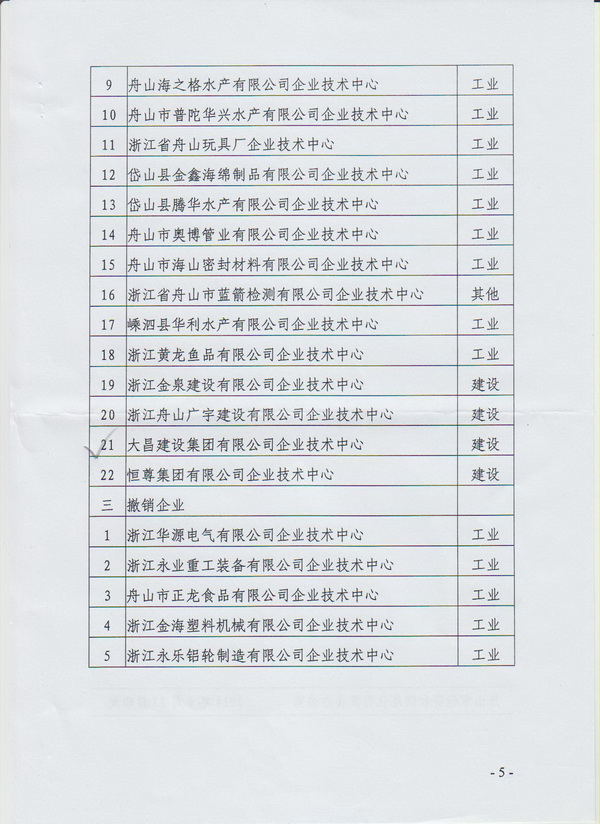 9 舟山海之格水产有限公司企业技术中心 工业
10 舟山市普陀华兴水产有限公司企业技术中心 工业
11 浙江省舟山玩具厂企业技术中心 工业
12 岱山县金鑫海绵制品有限公司企业技术中心 工业
13 岱山县腾华水产有限公司企业技术中心 工业
14 舟山市奥博管业有限公司企业技术中心 工业
15 舟山市海山密封材料有限公司企业技术中心 工业
16 浙江省舟山市蓝箭检测有限公司企业技术中心 其他
17 嵊泗县华利水产有限公司企业技术中心 工业
18 浙江黄龙鱼品有限公司企业技术中心 工业
19 浙江金泉建设有限公司企业技术中心 建设
20 浙江舟山广宇建设有限公司企业技术中心 建设
21 大昌建设集团有限公司企业技术中心 建设
22 恒尊集团有限公司企业技术中心 建设
三 撤销企业
1 浙江华源电气有限公司企业技术中心 工业
2 浙江永业重工装备有限公司企业技术中心 工业
3 舟山市正龙食品有限公司企业技术中心 工业
4 浙江金海塑料机械有限公司企业技术中心 工业
5 浙江永乐铝轮制造有限公司企业技术中心 工业
- 5 -